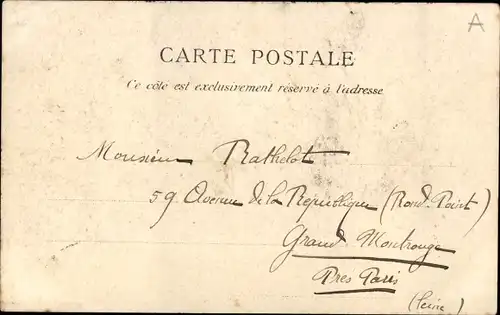 A
CARTE POSTALE
Ce côté est exclusivement réservé à l'adresse
Monsieur Rathelot
59 Avenue de la République (Rond. Point)
Grand Montrouge
Près Paris
(Seine)